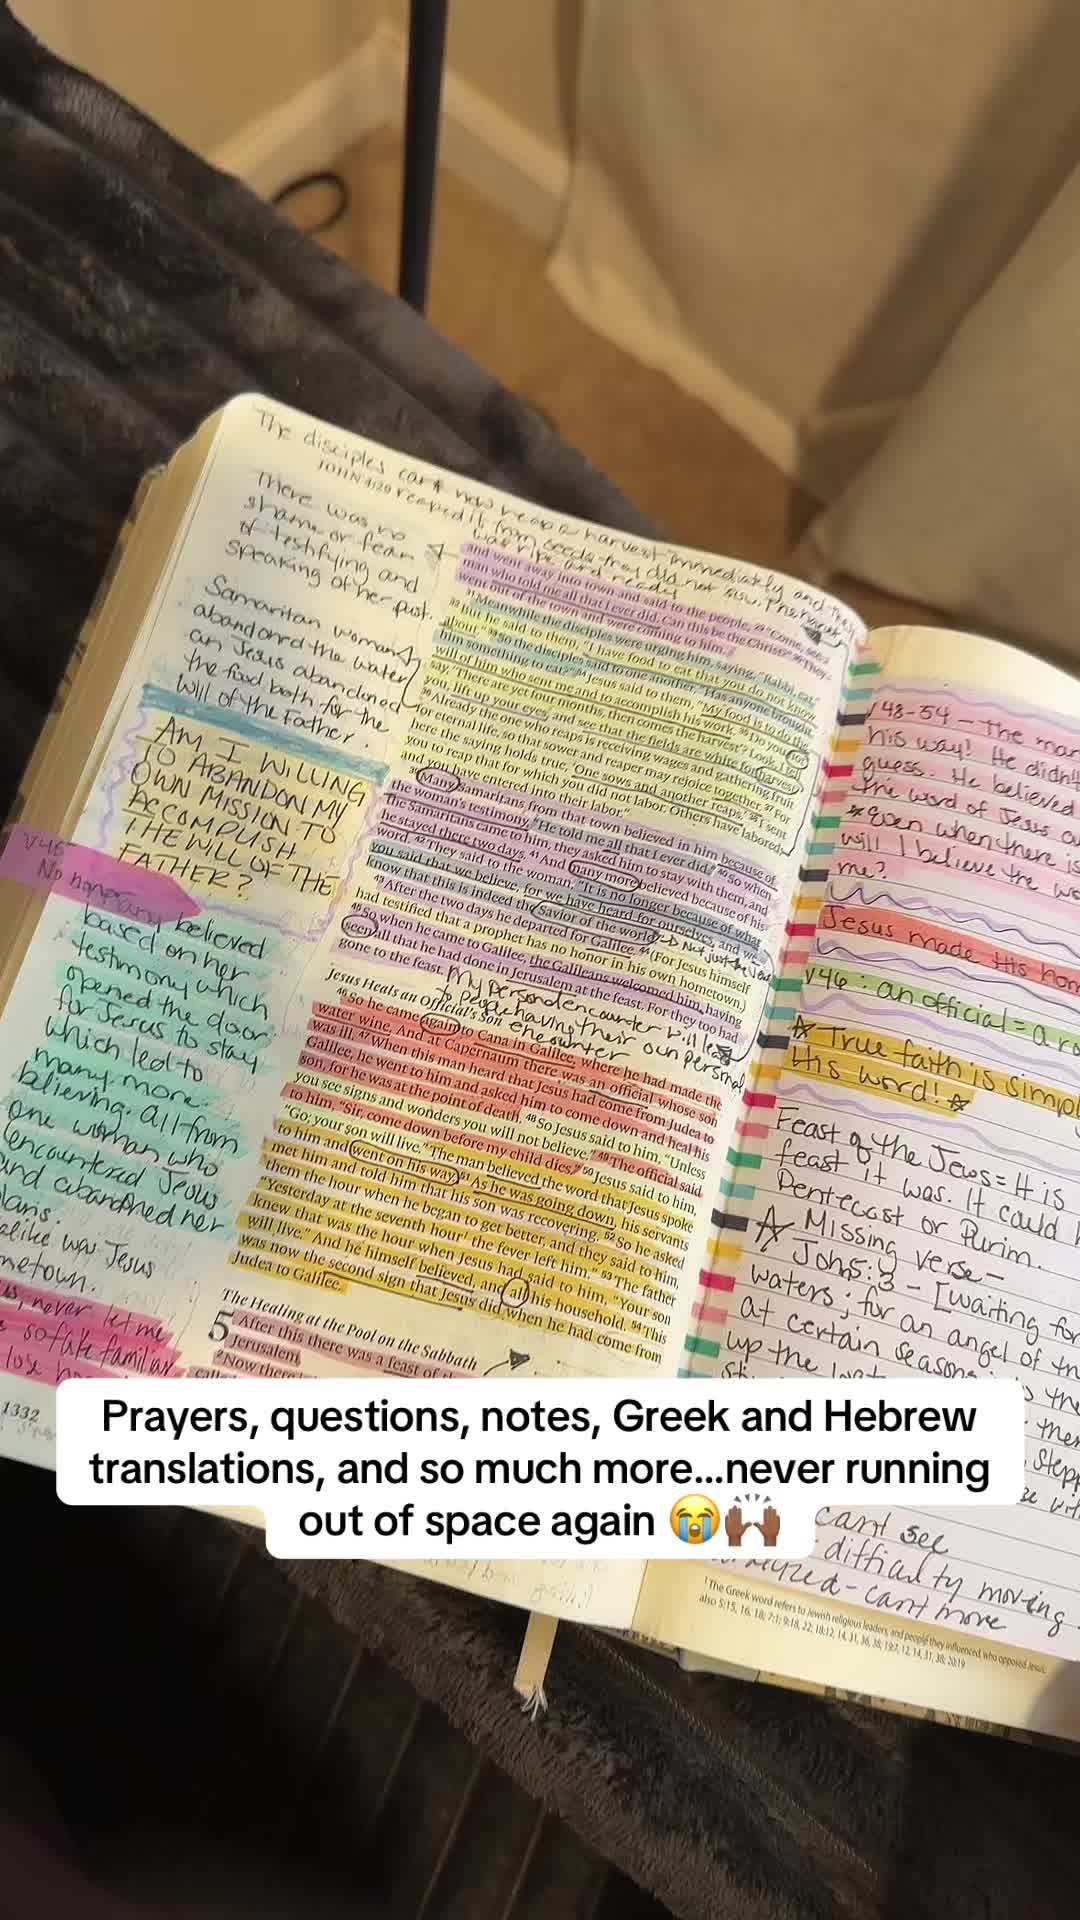 The disciples can now reap a harvest immediately and they
JOHN 4:29 reaped it from seeds they did not sow. The harvest
was ripe and ready
There was no
shame or fear
of testifying and
speaking of her past.
Samaritan woman
abandoned the water
an Jesus abandoned
the food both for the
will of the Father.
AM I WILLING
TO ABANDON MY
OWN MISSION TO
ACCOMPLISH
THE WILL OF THE
FATHER?
V45
No honor
many believed
based on her
testimony which
opened the door
for Jesus to stay
which led to
many more
believing. All from
one woman who
encountered Jesus
and abandoned her
plans.
alike was Jesus
metown.
us, never let me
so fake familiar
lose
1332
and went away into town and said to the people, 29 "Come, see a
man who told me all that I ever did. Can this be the Christ?" 30 They
went out of the town and were coming to him.
31 Meanwhile the disciples were urging him, saying, "Rabbi, eat."
32 But he said to them, "I have food to eat that you do not know
about." 33 So the disciples said to one another, "Has anyone brought
him something to eat?" 34 Jesus said to them, "My food is to do the
will of him who sent me and to accomplish his work. 35 Do you not
say, 'There are yet four months, then comes the harvest'? Look, I tell
you, lift up your eyes, and see that the fields are white for harvest.
36 Already the one who reaps is receiving wages and gathering fruit
for eternal life, so that sower and reaper may rejoice together. 37 For
here the saying holds true, 'One sows and another reaps.' 38 I sent
you to reap that for which you did not labor. Others have labored,
and you have entered into their labor."
39 Many Samaritans from that town believed in him because of
the woman's testimony, "He told me all that I ever did." 40 So when
the Samaritans came to him, they asked him to stay with them, and
he stayed there two days. 41 And many more believed because of his
word. 42 They said to the woman, "It is no longer because of what
you said that we believe, for we have heard for ourselves, and we
know that this is indeed the Savior of the world." → Not just the Jews
43 After the two days he departed for Galilee. 44 (For Jesus himself
had testified that a prophet has no honor in his own hometown.)
45 So when he came to Galilee, the Galileans welcomed him, having
seen all that he had done in Jerusalem at the feast. For they too had
gone to the feast.
My personal encounter will lead
to people having their own personal
encounter
Jesus Heals an Official's Son
46 So he came again to Cana in Galilee, where he had made the
water wine. And at Capernaum there was an official whose son
was ill. 47 When this man heard that Jesus had come from Judea to
Galilee, he went to him and asked him to come down and heal his
son, for he was at the point of death. 48 So Jesus said to him, "Unless
you see signs and wonders you will not believe." 49 The official said
to him, "Sir, come down before my child dies." 50 Jesus said to him,
"Go; your son will live." The man believed the word that Jesus spoke
to him and went on his way. 51 As he was going down, his servants
met him and told him that his son was recovering. 52 So he asked
them the hour when he began to get better, and they said to him,
"Yesterday at the seventh hour the fever left him." 53 The father
knew that was the hour when Jesus had said to him, "Your son
will live." And he himself believed, and all his household. 54 This
was now the second sign that Jesus did when he had come from
Judea to Galilee.
The Healing at the Pool on the Sabbath
5 After this there was a feast of
Jerusalem.
2 Now there
called
V48-54 - The man
his way! He didn't
guess. He believed
the word of Jesus
*Even when there is
will I believe the wo
me?
Jesus made His hom
V46: an official = a ro
☆ True faith is simpl
His word! ☆
Feast of the Jews = It is
feast it was. It could b
Pentecost or Purim.
☆ Missing verse -
John 5:3 - [waiting for
waters; for an angel of the
at certain seasons
up the wat
Stepp
cant see
difficulty moving
paralyzed - cant move
1 The Greek word refers to Jewish religious leaders, and people they influenced, who opposed Jesus;
also 5:15, 16, 18; 7:1; 9:18, 22; 18:12, 14, 31, 36, 38; 19:7, 12, 14, 31, 38; 20:19
Prayers, questions, notes, Greek and Hebrew
translations, and so much more...never running
out of space again 😭🙌🏾